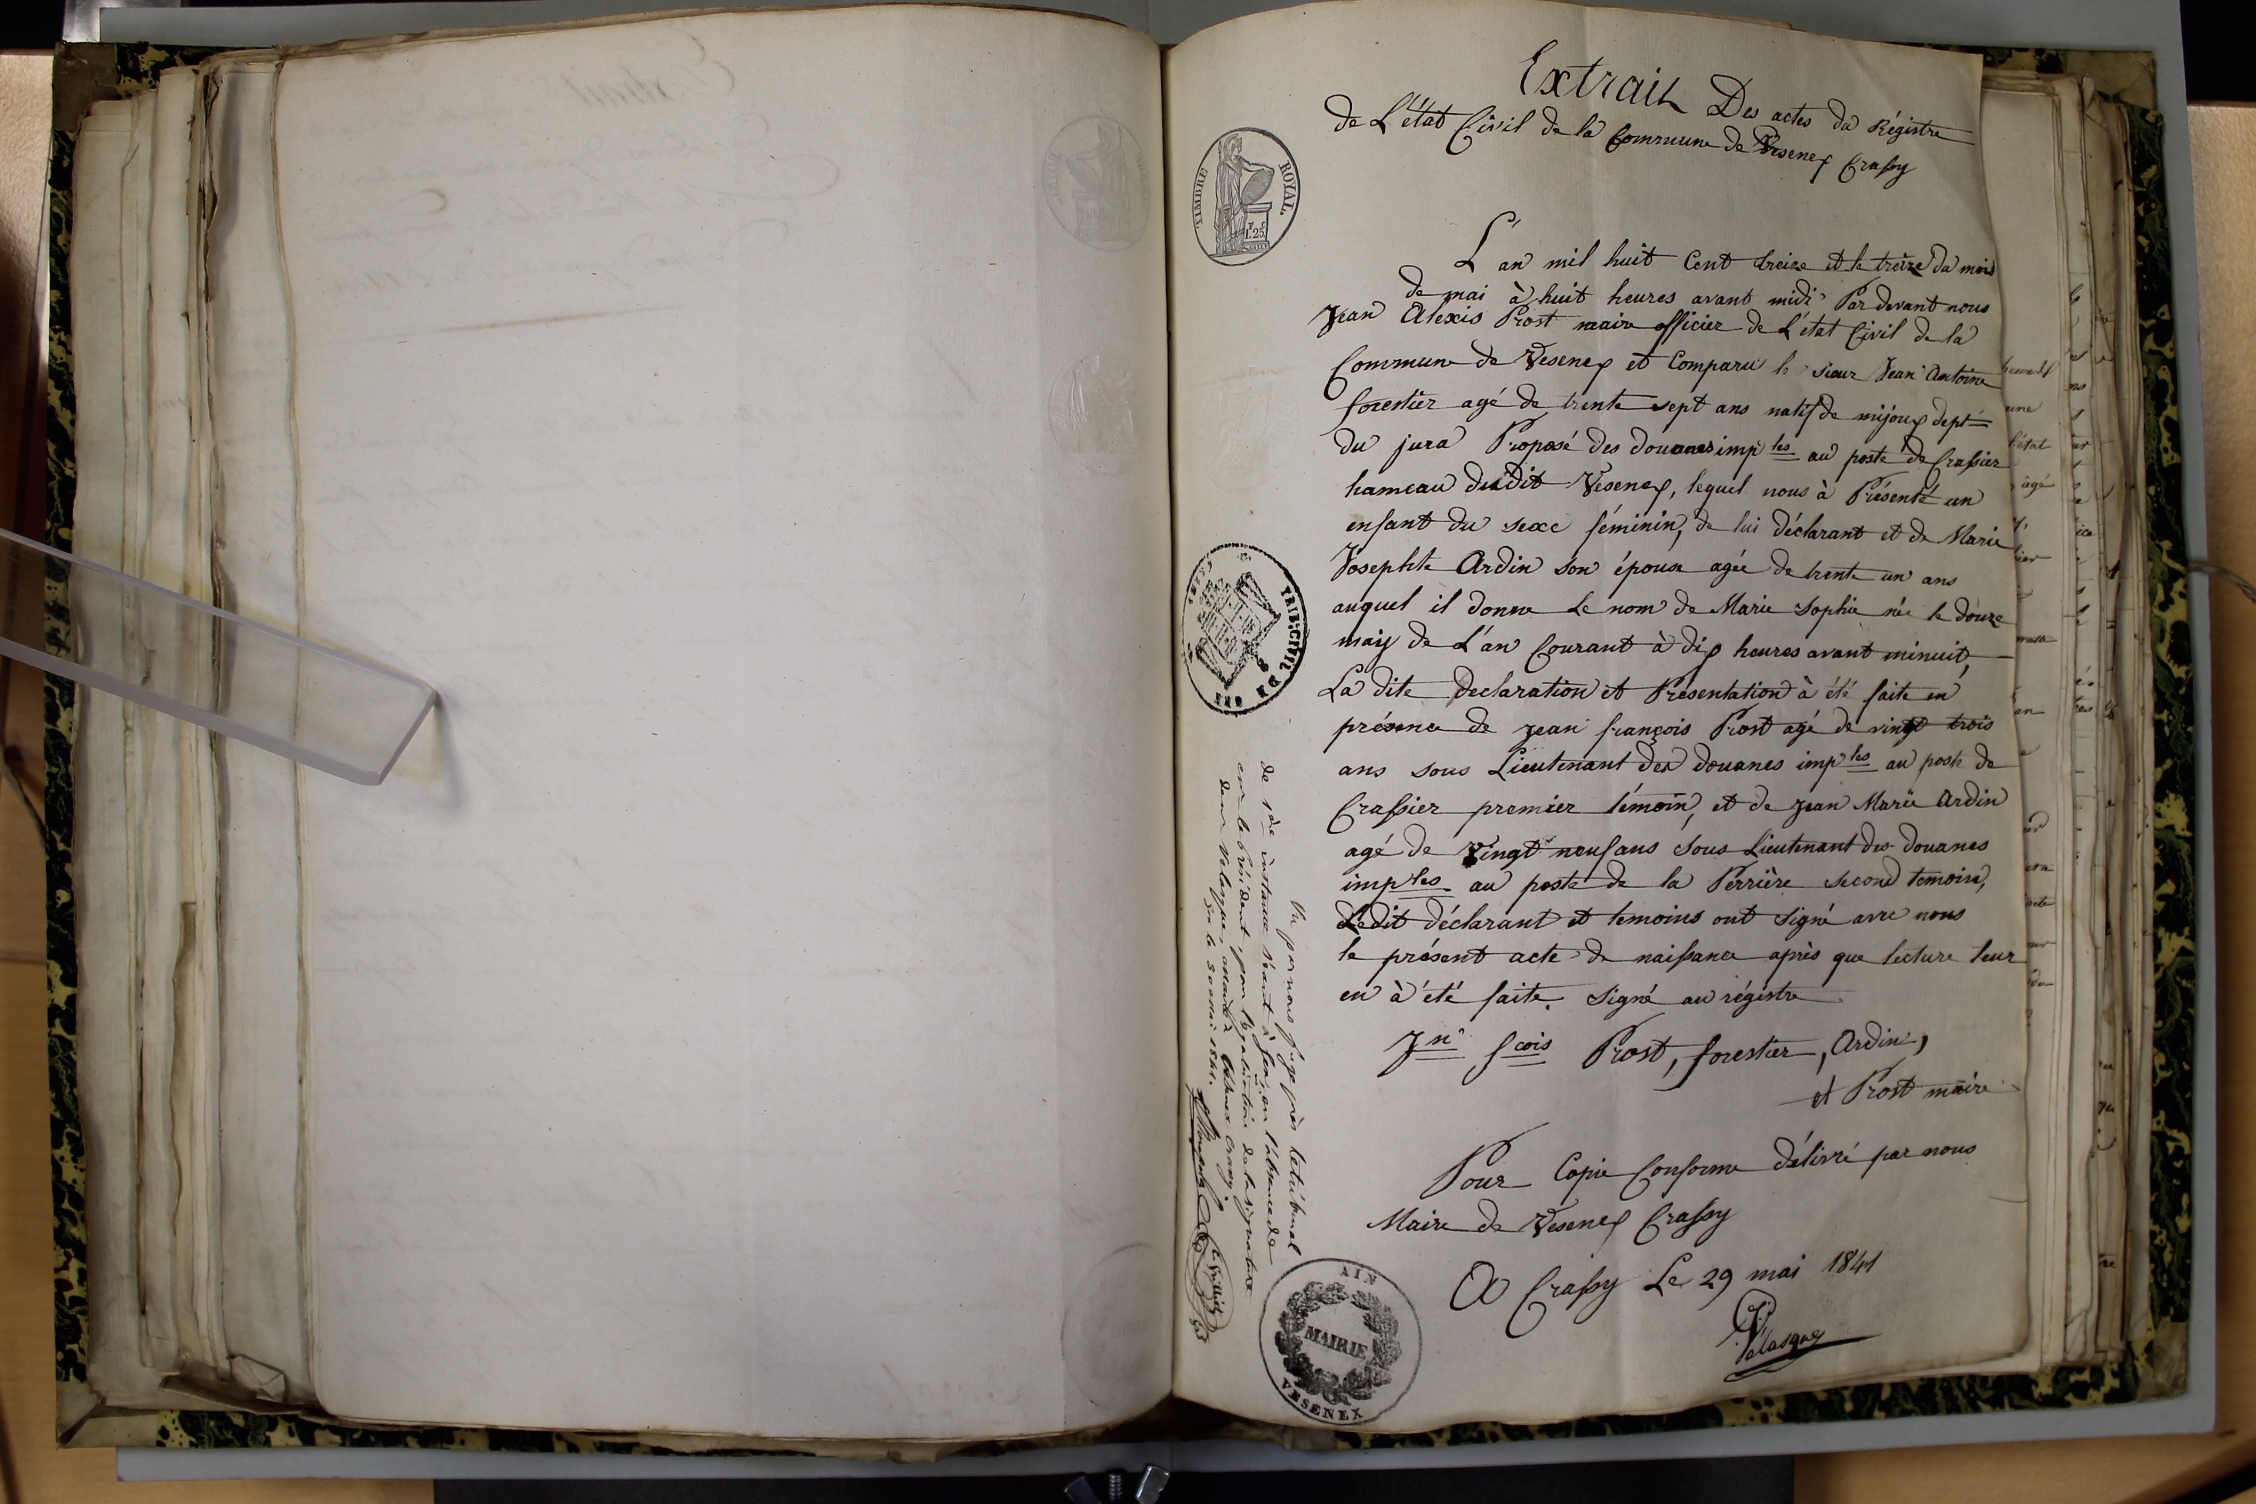 Extrait Des actes du Régistre
de L'état Civil de la Commune de Vesenex Crassy
TIMBRE ROYAL.
L'an mil huit Cent treize et le treize du mois
de mai à huit heures avant midi Par devant nous
Jean Alexis Prost maire officier de L'état Civil de la
Commune de Vesenex et Comparu le sieur Jean Antoine
forestier agé de trente sept ans natif de mijoux dept
du jura Proposé des douanes imples au poste de Crassier
hameau dudit Vesenex, lequel nous à Présenté un
enfant du sexe féminin, de lui déclarant et de Marie
Josephte Ardin son épouse agée de trente un ans
auquel il donne le nom de Marie Sophie née le douze
may de L'an Courant à dix heures avant minuit,
La dite Declaration et Présentation à été faite en
présence de jean françois Prost agé de vingt trois
ans sous Lieutenant des douanes imples au poste de
Crassier premier témoin, et de jean Marie Ardin
agé de Vingt neuf ans sous Lieutenant des douanes
imples au poste de la Perrière second temoin,
Ledit déclarant et temoins ont signé avec nous
le présent acte de naissance après que lecture leur
en à été faite. signé au régistre
Jn fcois Prost, forestier, Ardin,
et Prost maire
Pour Copie Conforme délivré par nous
Maire de Vesenex Crassy
A Crassy Le 29 mai 1841
Pelasque
TRIB: CIVIL DE GEX
Vu par nous juge près le tribunal
de 1ère instance séant à Gex, en l'absence de
le président pour légalisation de la signature
Vesenex Crassy.
Gex le 30 mai 1841.
AIN
MAIRIE
VESENEX